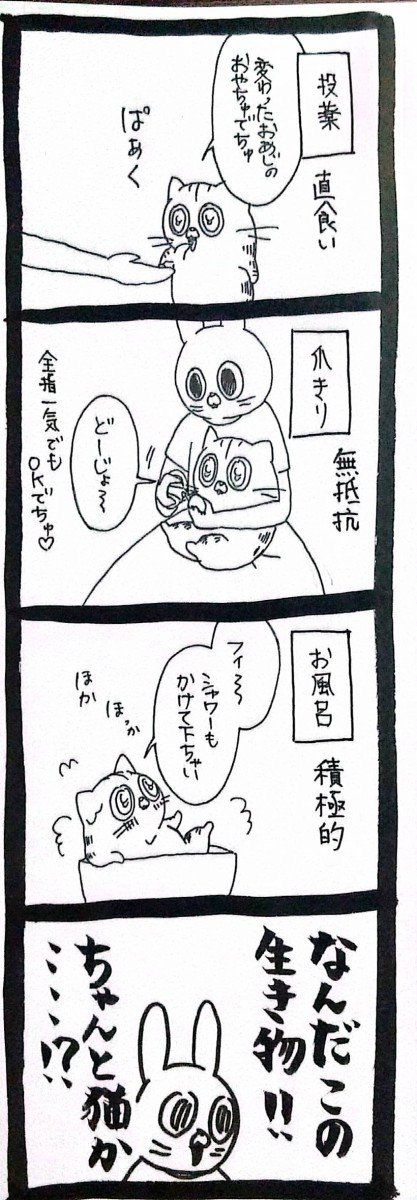 投薬
直食い
変わったおあじの
おやちゅでちゅ
ぱぁく
爪きり
無抵抗
どーじょ〜
全指一気でも
OKでちゅ♡
お風呂
積極的
フィ〜
シャワーも
かけて下ちゃい
ほっか
ほか
なんだこの
生き物!!
ちゃんと猫か
……!?